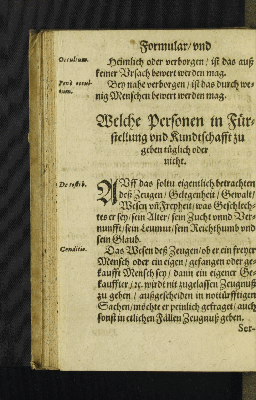 Formular/vnd
Occultum.
Heimlich oder verborgen/ist das auß
keiner Vrsach bewert werden mag.
Penè occul-
tum.
Bey nahe verborgen/ist das durch we-
nig Menschen bewert werden mag.
Welche Personen in Für-
stellung vnd Kundtschafft zu
geben tüglich oder
nicht.
De testib.
AUff das soltu eigentlich betrachten
deß Zeugen/Gelegenheit/Gewalt/
Wesen vñ Freyheit/was Geschlech-
tes er sey/sein Alter/sein Zucht vnnd Ver-
nunfft/sein Leumut/sein Reichthumb vnd
sein Glaub.
Conditio.
Das Wesen deß Zeugen/ob er ein freyer
Mensch oder ein eigen/gefangen oder ge-
kaufft Mensch sey/dann ein eigener Ge-
kauffter/ꝛc. wirdt nit zugelassen Zeugnuß
zu geben/außgescheiden in notürfftigen
Sachen/möchte er peinlich gefraget/auch
sonst in etlichen Fällen Zeugnuß geben.